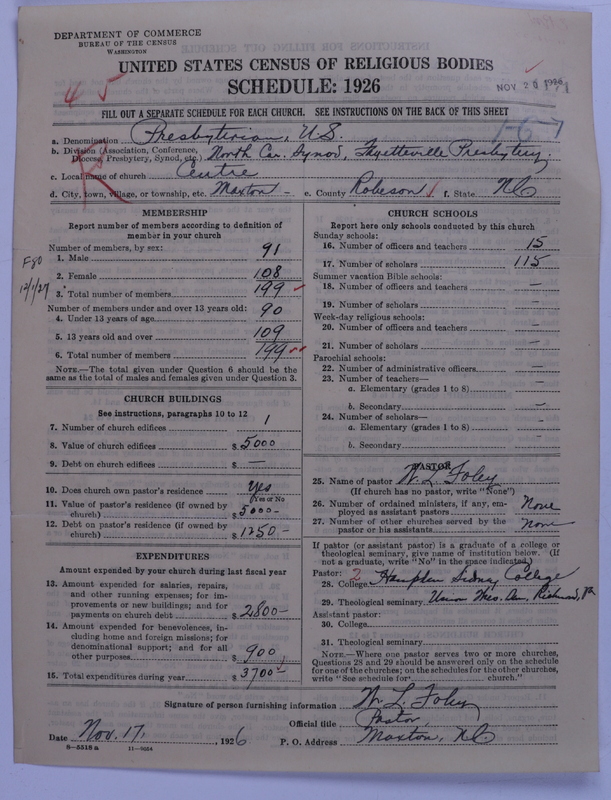 DEPARTMENT OF COMMERCE
BUREAU OF THE CENSUS
WASHINGTON
UNITED STATES CENSUS OF RELIGIOUS BODIES
SCHEDULE: 1926
NOV 20 1926
4 5
FILL OUT A SEPARATE SCHEDULE FOR EACH CHURCH. SEE INSTRUCTIONS ON THE BACK OF THIS SHEET
1-6-7
a. Denomination Presbyterian, U.S.
b. Division (Association, Conference, Diocese, Presbytery, Synod, etc.) North Car. Synod, Fayetteville Presbytery.
c. Local name of church Centre
d. City, town, village, or township, etc. Maxton - e. County Robeson f. State N.C.
MEMBERSHIP
Report number of members according to definition of
member in your church
Number of members, by sex:
1. Male 91
2. Female 108
3. Total number of members 199
F80
12/1/27
Number of members under and over 13 years old:
4. Under 13 years of age 90
5. 13 years old and over 109
6. Total number of members 199
NOTE.—The total given under Question 6 should be
same as the total of males and females given under Question 3.
CHURCH BUILDINGS
See instructions, paragraphs 10 to 12
7. Number of church edifices 1
8. Value of church edifices $ 5000
9. Debt on church edifices $ —
10. Does church own pastor's residence Yes
(Yes or No)
11. Value of pastor's residence (if owned by
church) $ 5000-
12. Debt on pastor's residence (if owned by
church) $ 1250-
EXPENDITURES
Amount expended by your church during last fiscal year
13. Amount expended for salaries, repairs,
and other running expenses; for im-
provements or new buildings; and for
payments on church debt $ 2800-
14. Amount expended for benevolences, in-
cluding home and foreign missions; for
denominational support; and for all
other purposes $ 900
15. Total expenditures during year $ 3700
CHURCH SCHOOLS
Report here only schools conducted by this church
Sunday schools:
16. Number of officers and teachers 15
17. Number of scholars 115
Summer vacation Bible schools:
18. Number of officers and teachers —
19. Number of scholars —
Week-day religious schools:
20. Number of officers and teachers —
21. Number of scholars —
Parochial schools:
22. Number of administrative officers —
23. Number of teachers—
a. Elementary (grades 1 to 8) —
b. Secondary —
24. Number of scholars—
a. Elementary (grades 1 to 8) —
b. Secondary —
PASTOR
25. Name of pastor W. L. Foley
(If church has no pastor, write "None")
26. Number of ordained ministers, if any, em-
ployed as assistant pastors None
27. Number of other churches served by the
pastor or his assistants None
If pastor (or assistant pastor) is a graduate of a college or
theological seminary, give name of institution below. (If
not a graduate, write "No" in the space indicated.)
Pastor: 2
28. College Hampden Sidney College
29. Theological seminary Union Theo. Sem. Richmond, Va
Assistant pastor:
30. College
31. Theological seminary
NOTE.—Where one pastor serves two or more churches,
Questions 28 and 29 should be answered only on the schedule
for one of the churches; on the schedules for the other churches,
write "See schedule for church."
Signature of person furnishing information Wm L. Foley
Official title Pastor,
Date Nov. 17, 1926 P. O. Address Maxton, N.C.
8-5518 a 11-9024